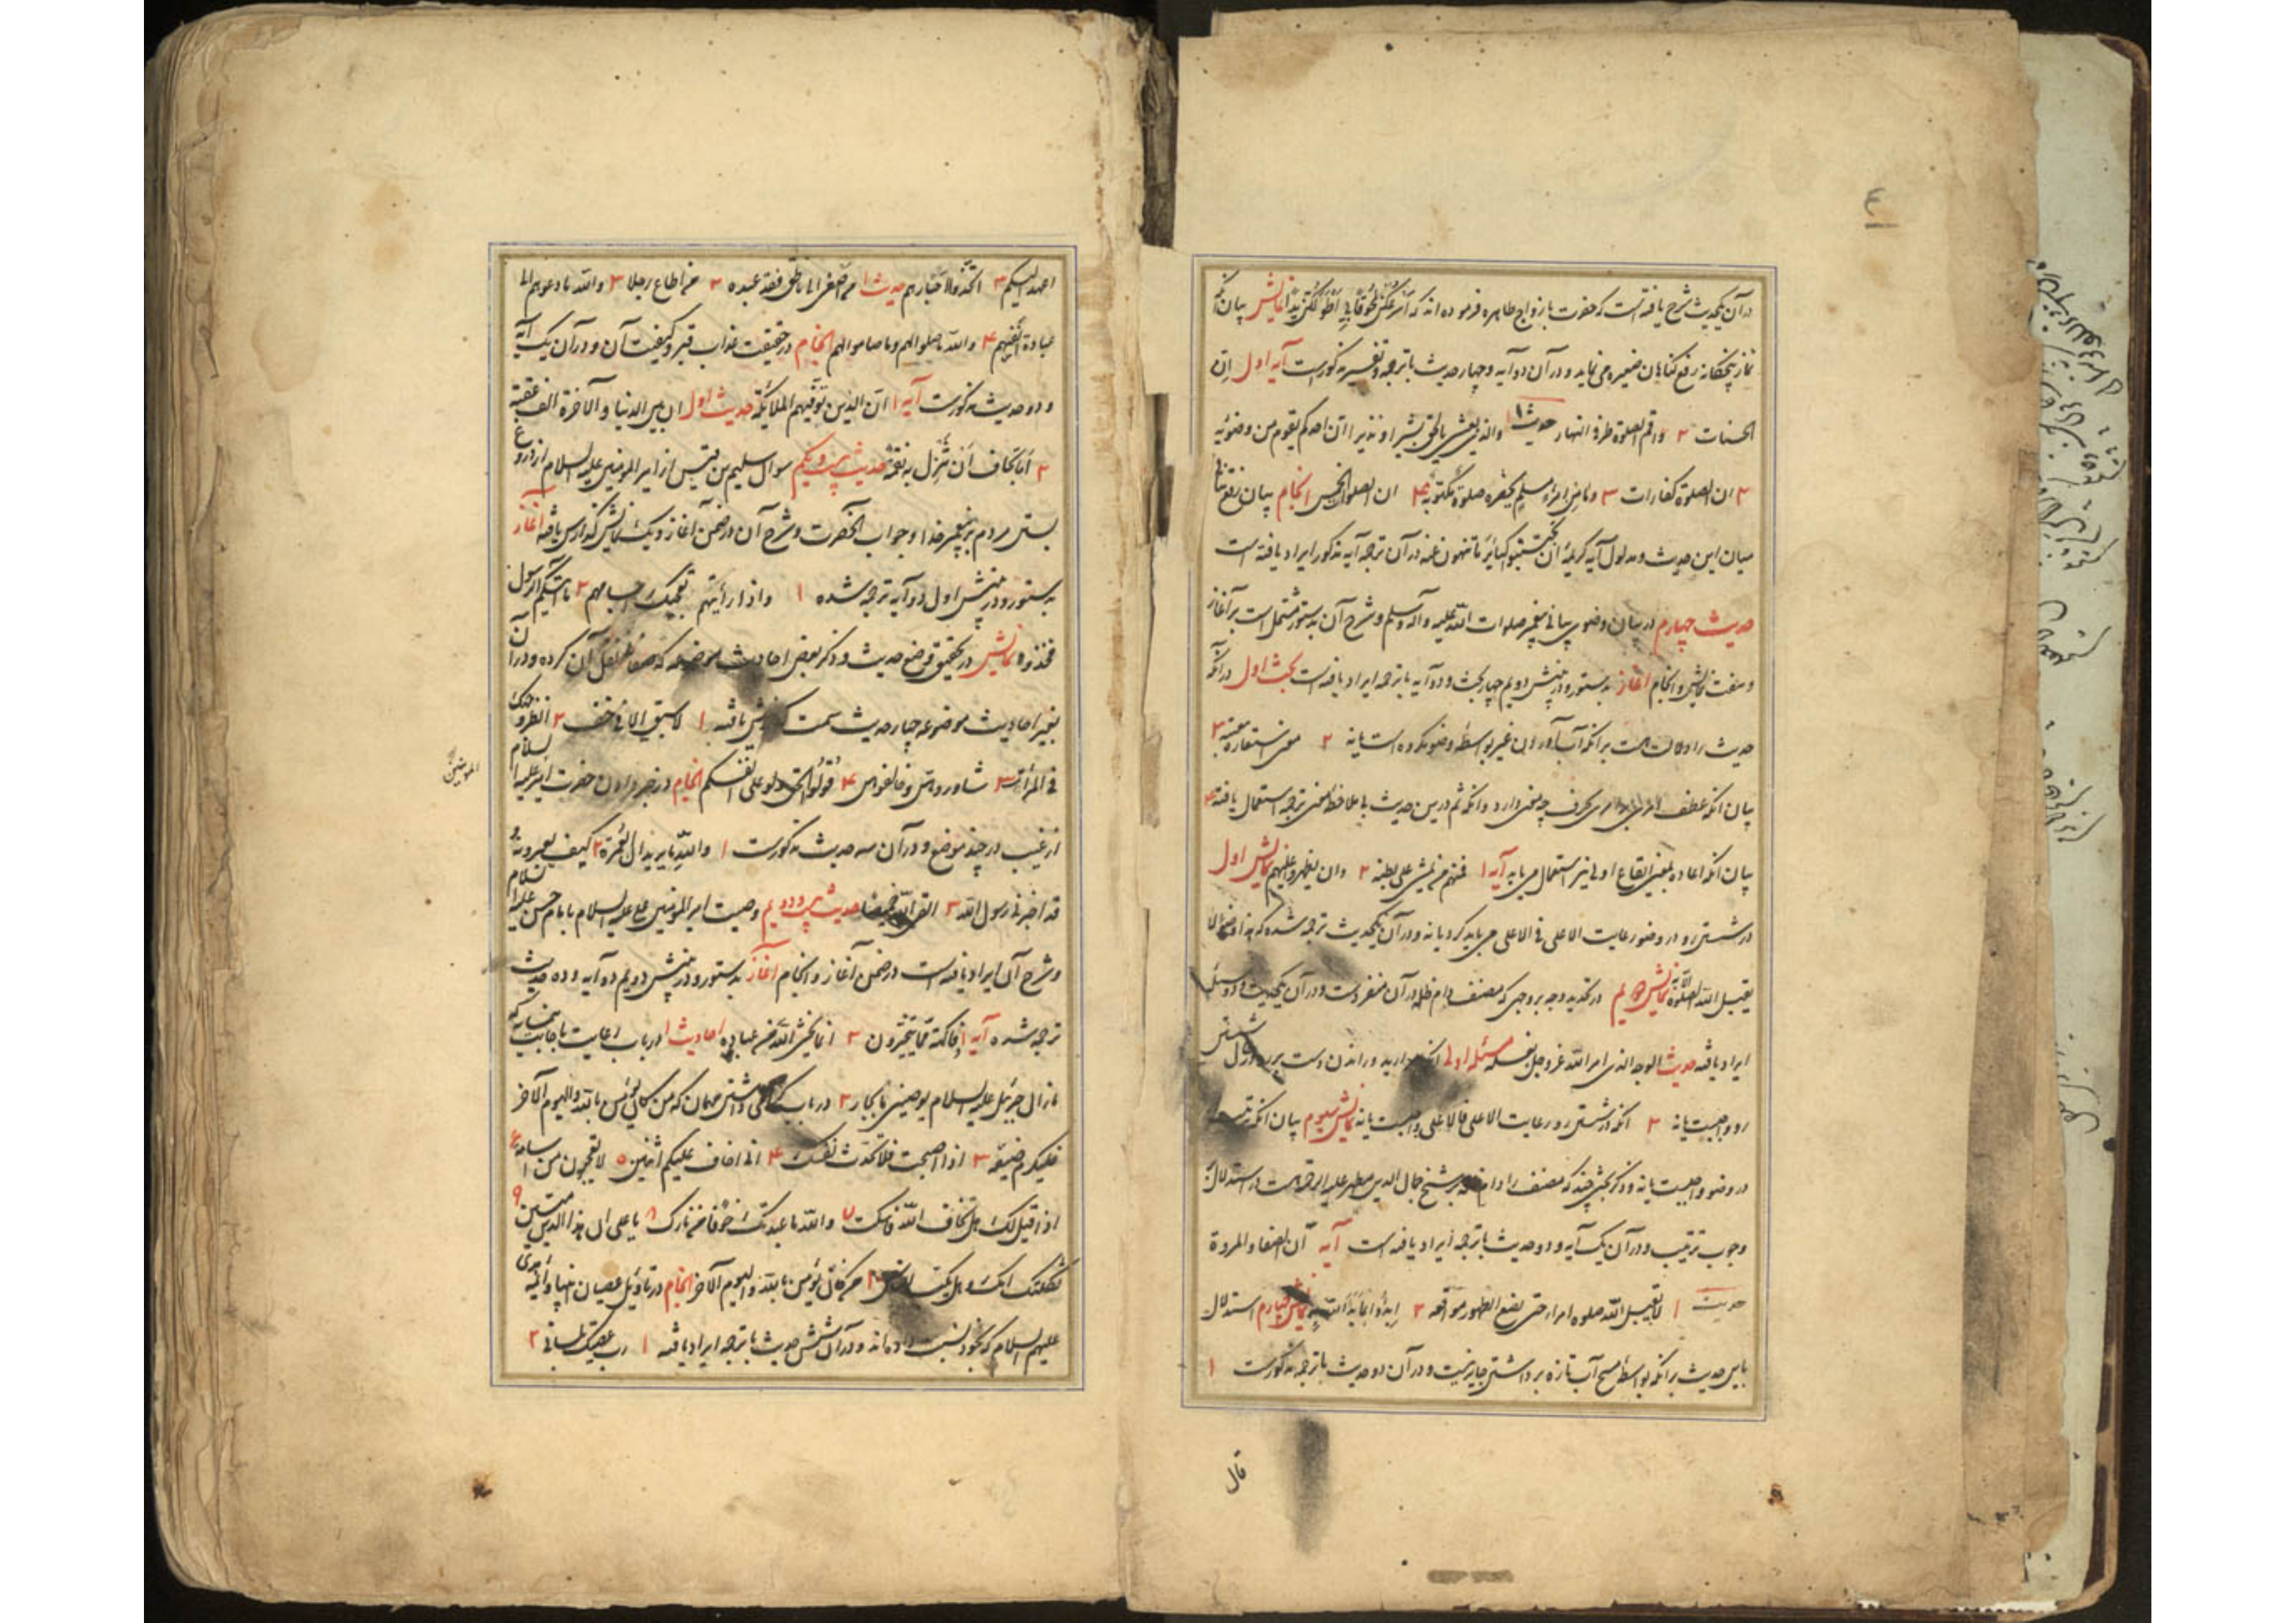 ٤
در آن یکحدیث شرح یافته است که حضرت با ازواج طاهره فرموده اند که اسرعکن لحوقا بی اطولکن یدا نمایش بیان آنکه
نماز پنجگانه رفع گناهان صغیره می نماید و در آن دو آیه و چهار حدیث با ترجمه و تفسیر مذکورست آیه اول ان
الحسنات ۲ واقم الصلوة طرفی النهار حدیث ۱ والذی بعثنی بالحق بشیرا و نذیرا ان احدکم لیقوم من وضوئه
۲ ان الصلوة کفارات ۳ و ما من امرء مسلم یحضره صلوة مکتوبة ۴ ان الصلوات الخمس انجام بیان رفع تنافی
میان این حدیث و مدلول آیه کریمه ان تجتنبوا کبائر ما تنهون عنه در آن ترجمه آیه مذکور ایراد یافته است
حدیث چهارم در بیان وضوی بیانی پیغمبر صلوات الله علیه و آله وسلم و شرح آن بدستور مشتمل است بر آغاز
و هفت نمایش و انجام آغاز بدستور و در منش دویم چهار بحث و دو آیه با ترجمه ایراد یافته است بحث اول در آنکه
حدیث را دلالت هست بر آنکه آب آوردن غیر بواسطه وضو مکروه است یا نه ۲ معنی استعاره تبعیه ۳
بیان آنکه عطف امری بر امری بحرف چه معنی دارد و آنکه ثم درین حدیث بملاحظه معنی ترجمه استعمال یافته ۴
بیان آنکه اعاده بمعنی ایقاع اولی نیز استعمال می یابد آیه ۱ فمنهم من یمشی علی بطنه ۲ وان یظهروا علیهم نمایش اول
در شستن رو در وضو رعایت الاعلی فی الاعلی می باید کرد یا نه و در آن یکحدیث ترجمه شده که هذا وضوء لا
یقبل الله الصلوة الا به نمایش دویم در تحدید وجه بر وجهی که مصنف دام ظله در آن منفردست و در آن یکحدیث و دو مسئله
ایراد یافته حدیث الوجه الذی امر الله عزوجل بغسله مسئله اولی آنکه مرارید و راندن دست بر رو در حال شستن
رو واجبست یا نه ۲ آنکه در شستن رو رعایت الاعلی فالاعلی واجبست یا نه نمایش سیوم بیان آنکه ترتیب
در وضو واجبست یا نه و ذکر بحثی چند که مصنف را دام ظله بر شیخ جمال الدین مطهر علیه الرحمة هست در استدلال
وجوب ترتیب و در آن یک آیه و دو حدیث با ترجمه ایراد یافته است آیه ان الصفا و المروة
حدیث ۱ لا یقبل الله صلوة امرء حتی یضع الطهور مواضعه ۲ ابدؤا بما بدأ الله به نمایش چهارم استدلال
باین حدیث بر آنکه بواسطه مسح آب تازه برداشتن جایز نیست و در آن دو حدیث با ترجمه مذکورست ۱
قال
اعهد الیکم ۳ اتخذوا احبارهم حدیث ۱ من اصغی الی ناطق فقد عبده ۲ من اطاع رجلا ۳ والله ما دعوهم الی
عبادة انفسهم ۴ والله ما صلوا لهم و ما صاموا لهم انجام در حقیقت عذاب قبر و کیفیت آن و در آن یک آیه
و دو حدیث مذکورست آیه ۱ ان الذین توفیهم الملائکة حدیث اول ان بین الدنیا و الآخرة الف عقبة
۲ اما تخاف ان تنزل به نقمة حدیث بیست و یکم سوال سلیم بن قیس از امیر المومنین علیه السلام از دروغ
بستن مردم بر پیغمبر خدا و جواب آنحضرت و شرح آن در ضمن آغاز و یک نمایش گذارش یافته آغاز
بدستور و در منش اول دو آیه ترجمه شده ۱ و اذا رأیتهم تعجبک اجسامهم ۲ ما آتیکم الرسول
فخذوه نمایش در تحقیق وضع حدیث و ذکر بعض احادیث موضوعه که صغانی نقل آن کرده و در آن
بغیر احادیث موضوعه چهار حدیث سمت گذارش یافته ۱ لا سبق الا فی خف ۲ انظروا
فی المرآة ۳ شاوروهن و خالفوهن ۴ قولوا الحق ولو علی انفسکم انجام در خبر دادن حضرت امیر علیه السلام
المومنین
از غیب در چند موضع و در آن سه حدیث مذکورست ۱ والله ما یریدان العمرة ۲ کیف یعبرونه و
قد اخبرنی رسول الله ۳ حدیث بیست و دویم وصیت امیر المومنین علی علیه السلام بامام حسن علیه السلام
و شرح آن ایراد یافته است در ضمن آغاز و انجام آغاز بدستور و در منش دویم دو آیه و ده حدیث
ترجمه شده آیه ۱ فاکهة مما یتخیرون ۲ انما یخشی الله من عباده احادیث ۱ در باب رعایت جانب همسایه که
مازال جبرئیل علیه السلام یوصینی بالجار ۲ در باب گرامی داشتن مهمان که من کان یؤمن بالله و الیوم الآخر
فلیکرم ضیفه ۳ اذا اصبحت فلا تحدث نفسک ۴ انی اخاف علیکم اثنین ۵ لا تعجبون من اسامه ۶
اذا قیل لک هل تخاف الله فاسکت ۷ والله ما عبدتک خوفا من نارک ۸ یا علی ان هذا الدین متین ۹
ثکلتک امک و هل یکب الناس ۱۰ من کان یؤمن بالله و الیوم الآخر انجام در تاویل عصیان انبیا و ائمه هدی
علیهم السلام که بخود نسبت داده اند و در آن شش حدیث با ترجمه ایراد یافته ۱ رب عصیتک بلسانی ۲